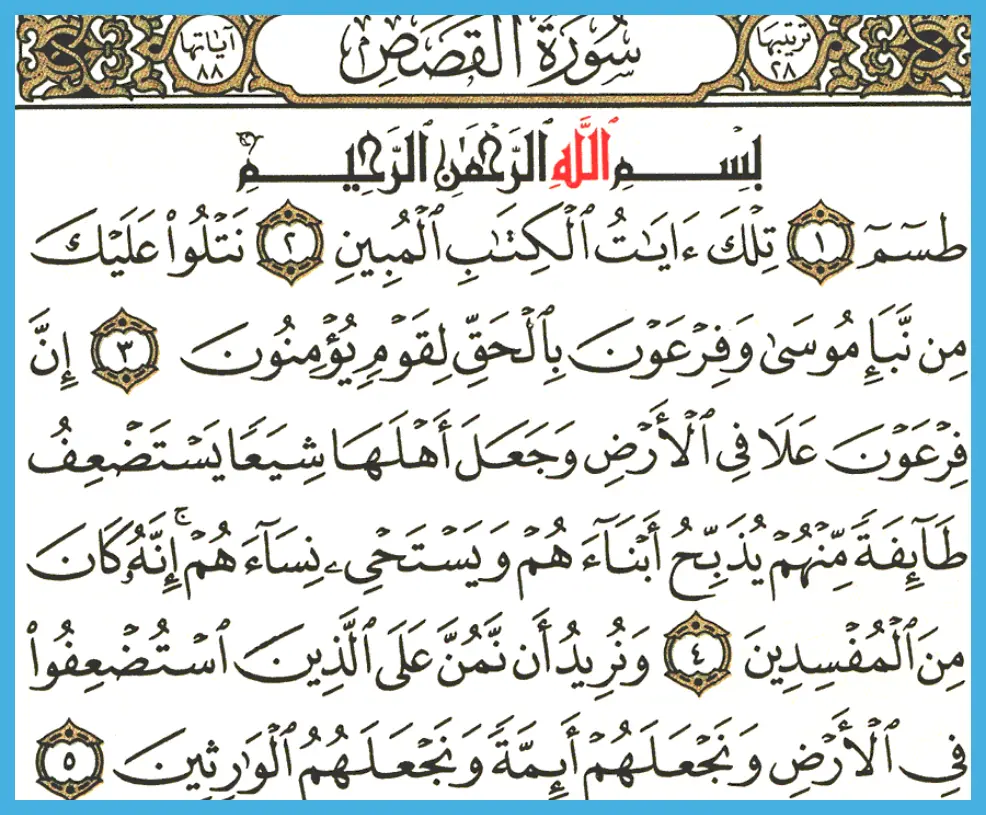 ترتيبها ٢٨
سُورَةُ القَصَصِ
آياتها ٨٨
بِسْمِ ٱللَّهِ ٱلرَّحْمَٰنِ ٱلرَّحِيمِ
طسٓمٓ ١ تِلْكَ ءَايَٰتُ ٱلْكِتَٰبِ ٱلْمُبِينِ ٢ نَتْلُوا۟ عَلَيْكَ
مِن نَّبَإِ مُوسَىٰ وَفِرْعَوْنَ بِٱلْحَقِّ لِقَوْمٍ يُؤْمِنُونَ ٣ إِنَّ
فِرْعَوْنَ عَلَا فِى ٱلْأَرْضِ وَجَعَلَ أَهْلَهَا شِيَعًا يَسْتَضْعِفُ
طَآئِفَةً مِّنْهُمْ يُذَبِّحُ أَبْنَآءَهُمْ وَيَسْتَحْىِۦ نِسَآءَهُمْ ۚ إِنَّهُۥ كَانَ
مِنَ ٱلْمُفْسِدِينَ ٤ وَنُرِيدُ أَن نَّمُنَّ عَلَى ٱلَّذِينَ ٱسْتُضْعِفُوا۟
فِى ٱلْأَرْضِ وَنَجْعَلَهُمْ أَئِمَّةً وَنَجْعَلَهُمُ ٱلْوَٰرِثِينَ ٥